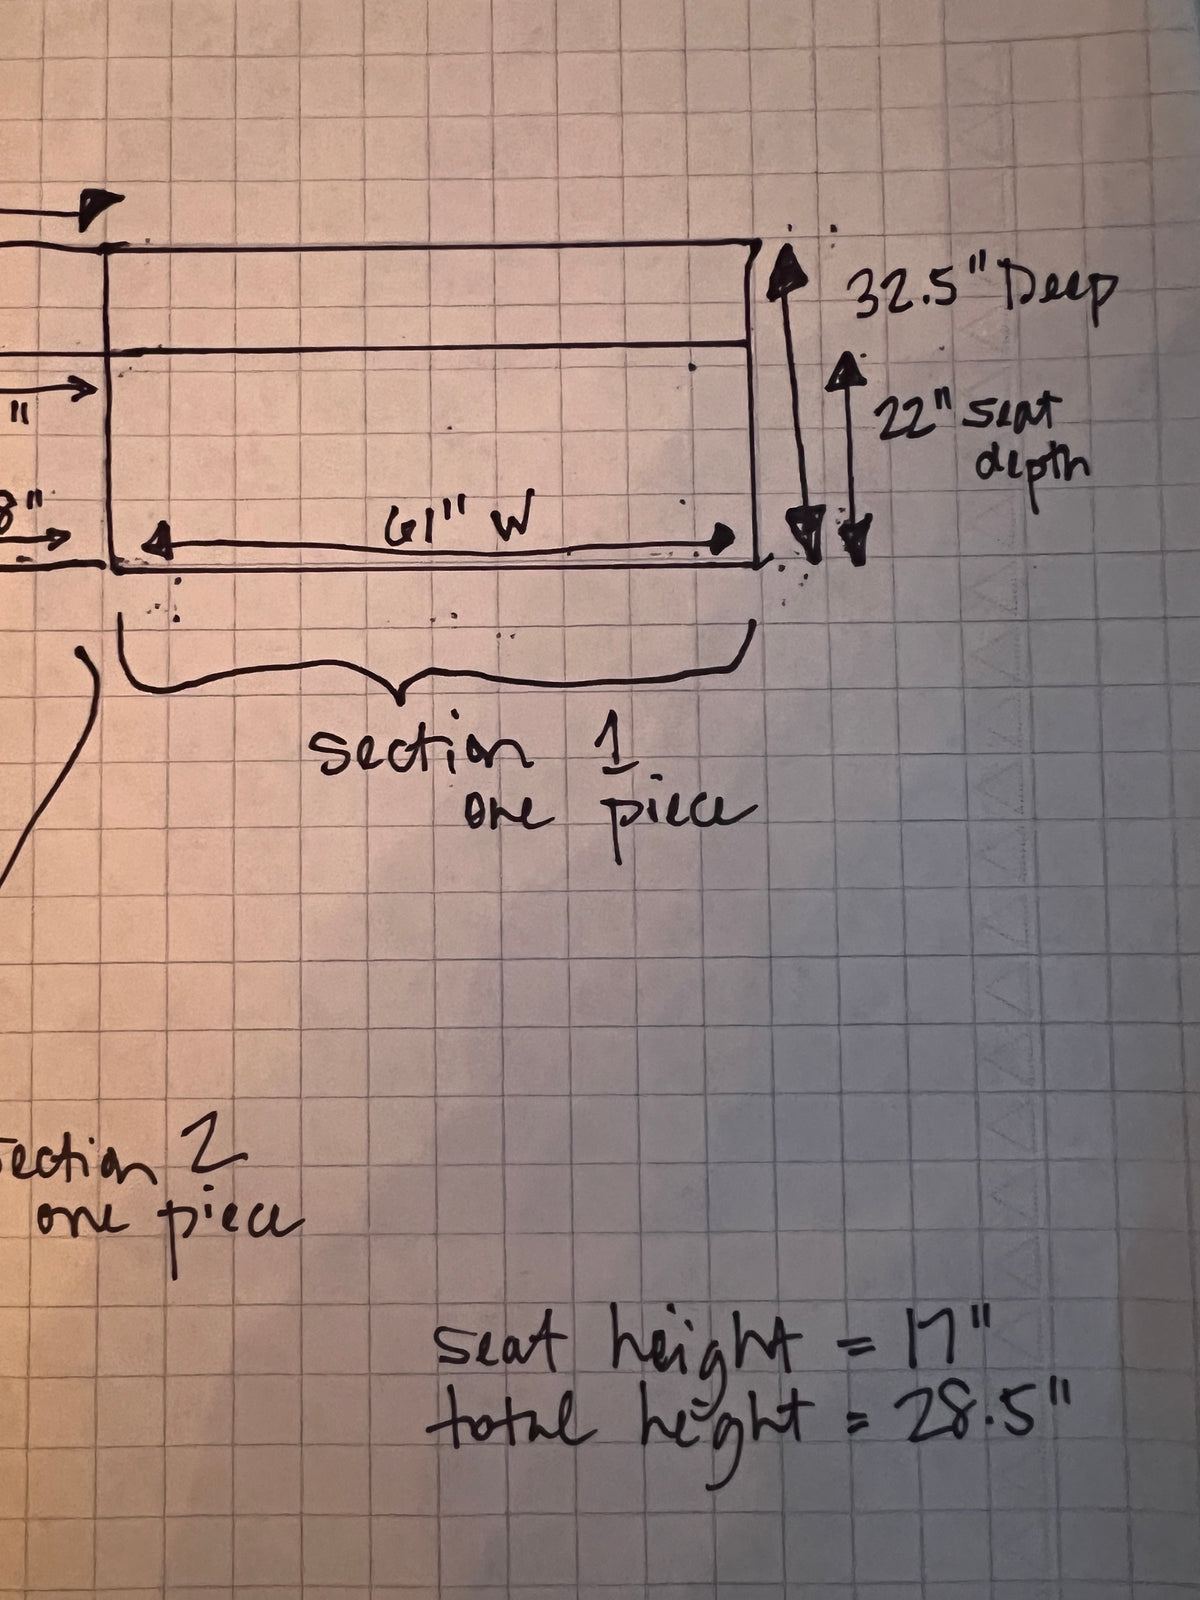 32.5" Deep
"
22" seat
depth
8"
61" W
section 1
one piece
section 2
one piece
seat height = 17"
total height = 28.5"